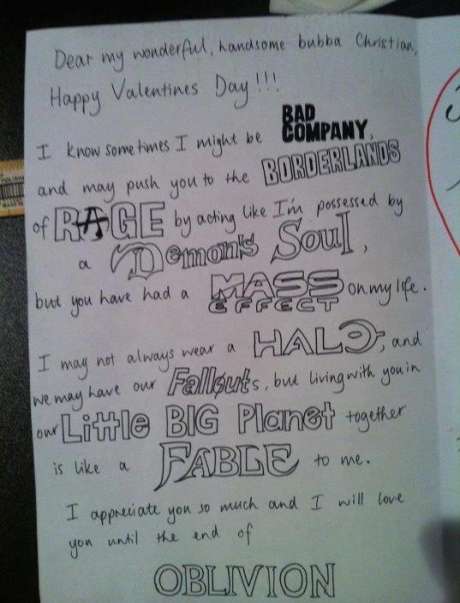 Dear my wonderful, handsome bubba Christian,
Happy Valentines Day!!!
I know sometimes I might be BAD COMPANY,
and may push you to the BORDERLANDS
of RAGE by acting like I'm possessed by
a Demon's Soul,
but you have had a MASS EFFECT on my life.
I may not always wear a HALO, and
we may have our Fallouts, but living with you in
our Little BIG Planet together
is like a FABLE to me.
I appreciate you so much and I will love
you until the end of
OBLIVION